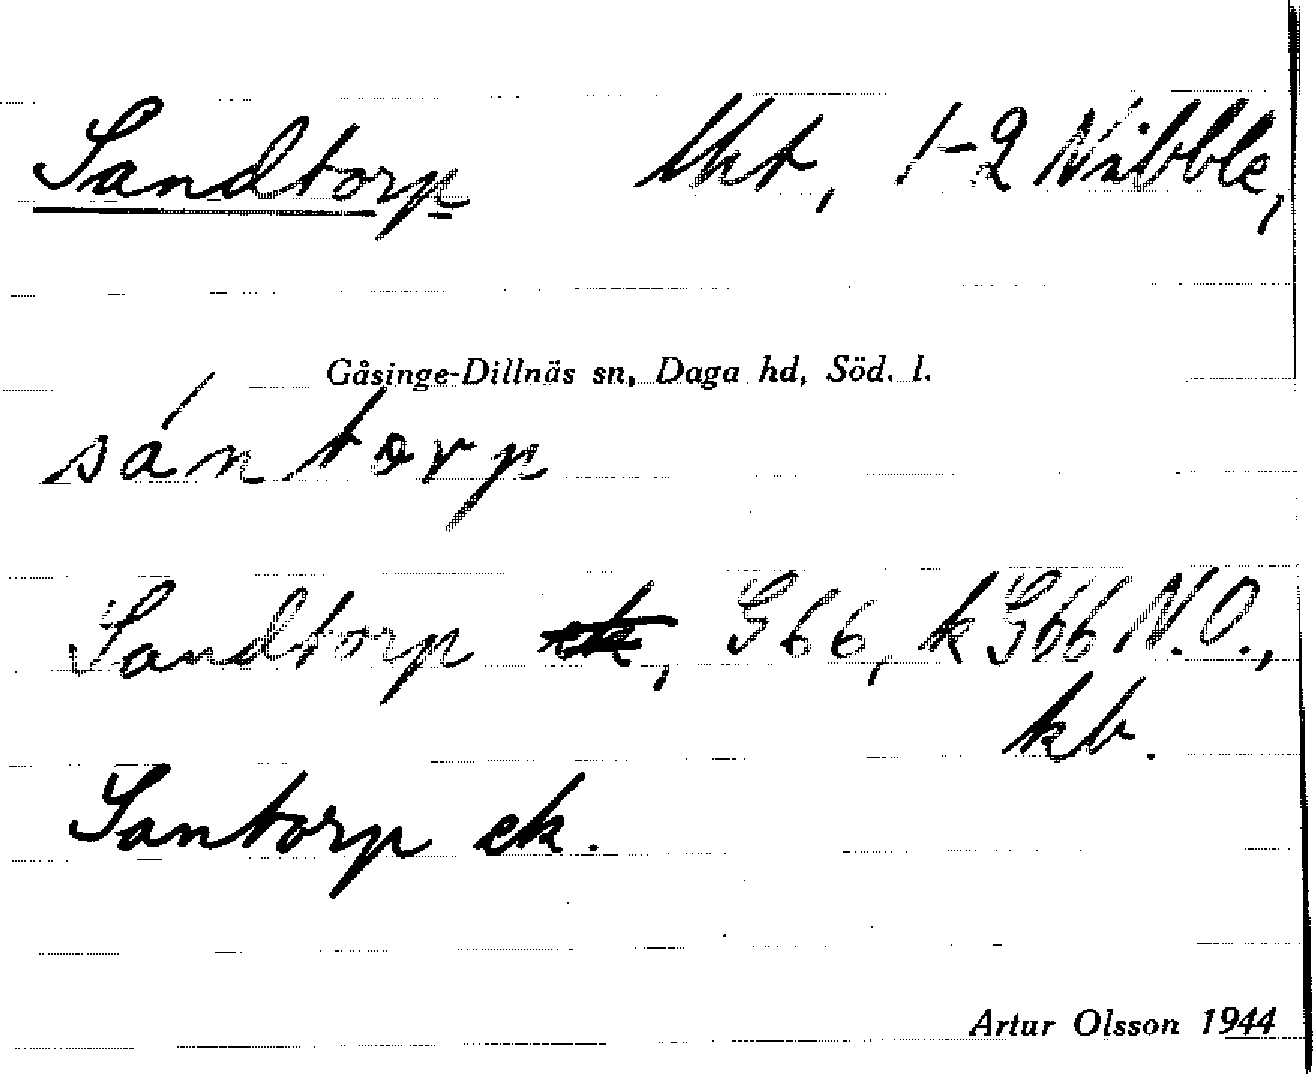 Sandtorp lht, 1-2 Näbble,
Gåsinge-Dillnäs sn, Daga hd, Söd. l.
sántorp
Sandtorp ek, G66, k G66 N.O.,
kb.
Santorp ek.
Artur Olsson 1944